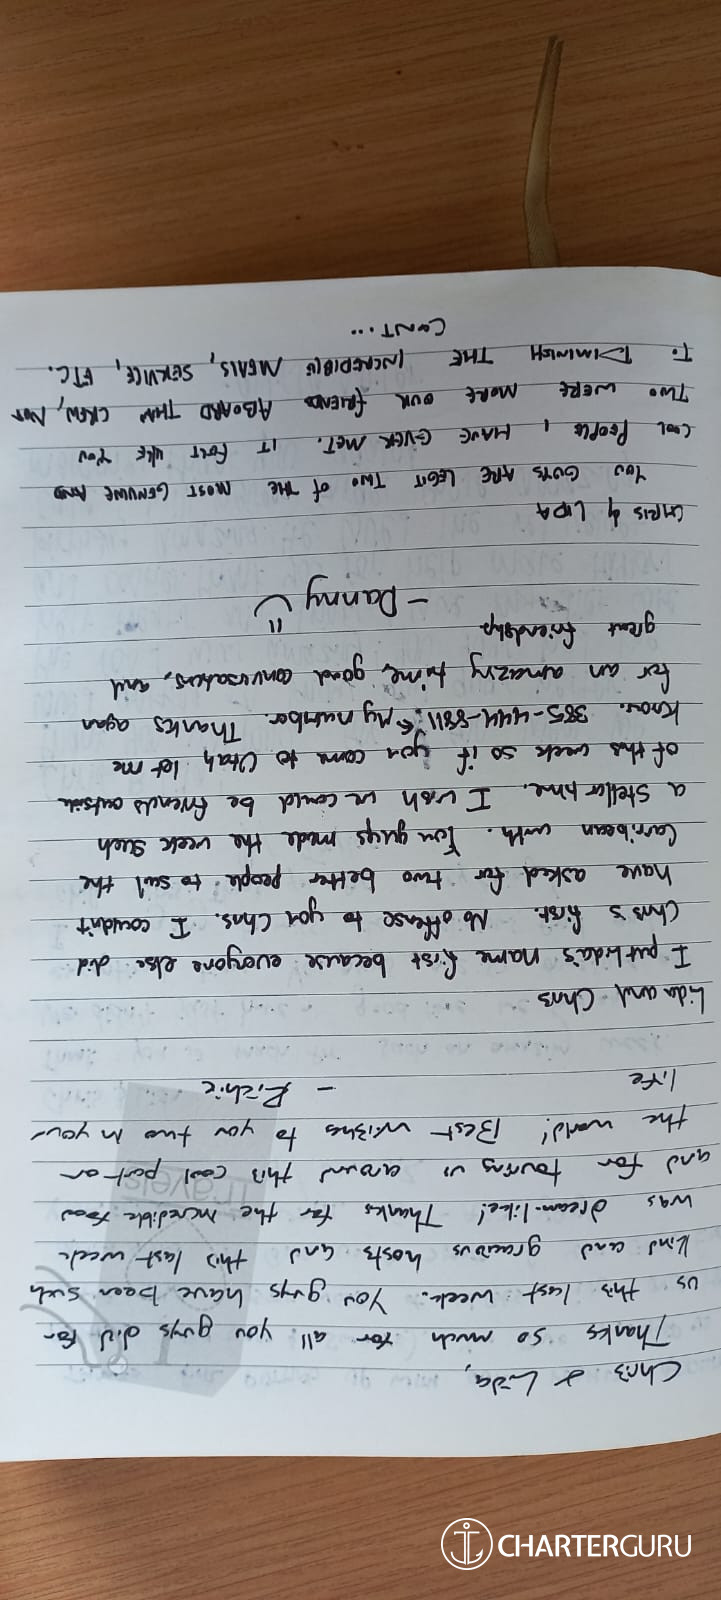 Chris & Lida,
Thanks so much for all you guys did for
us this last week. You guys have been such
kind and gracious hosts and this last week
was dream-like! Thanks for the incredible food
and for touring us around this cool part on
the world! Best wishes to you two in your
life
- Richie
Lida and Chris
I put Lida's name first because everyone else did
Chris's first. No offense to you Chris. I couldn't
have asked for two better people to sail the
Carribean with. You guys made the week such
a stellar time. I wish we could be friends outside
of this week so if you come to Utah let me
know. 385-444-8811 ← My number. Thanks again
for an amazing time, good conversations, and
great friendship
- Danny
CHRIS & LIDA
YOU GUYS ARE LEGIT TWO OF THE MOST GENUINE AND
COOL PEOPLE I HAVE EVER MET. IT FELT LIKE YOU
TWO WERE MORE OUR FRIENDS ABOARD THAN CREW, NOT
TO DIMINISH THE INCREDIBLE MEALS, SERVICE, ETC.
CONT...
Travels
CHARTERGURU